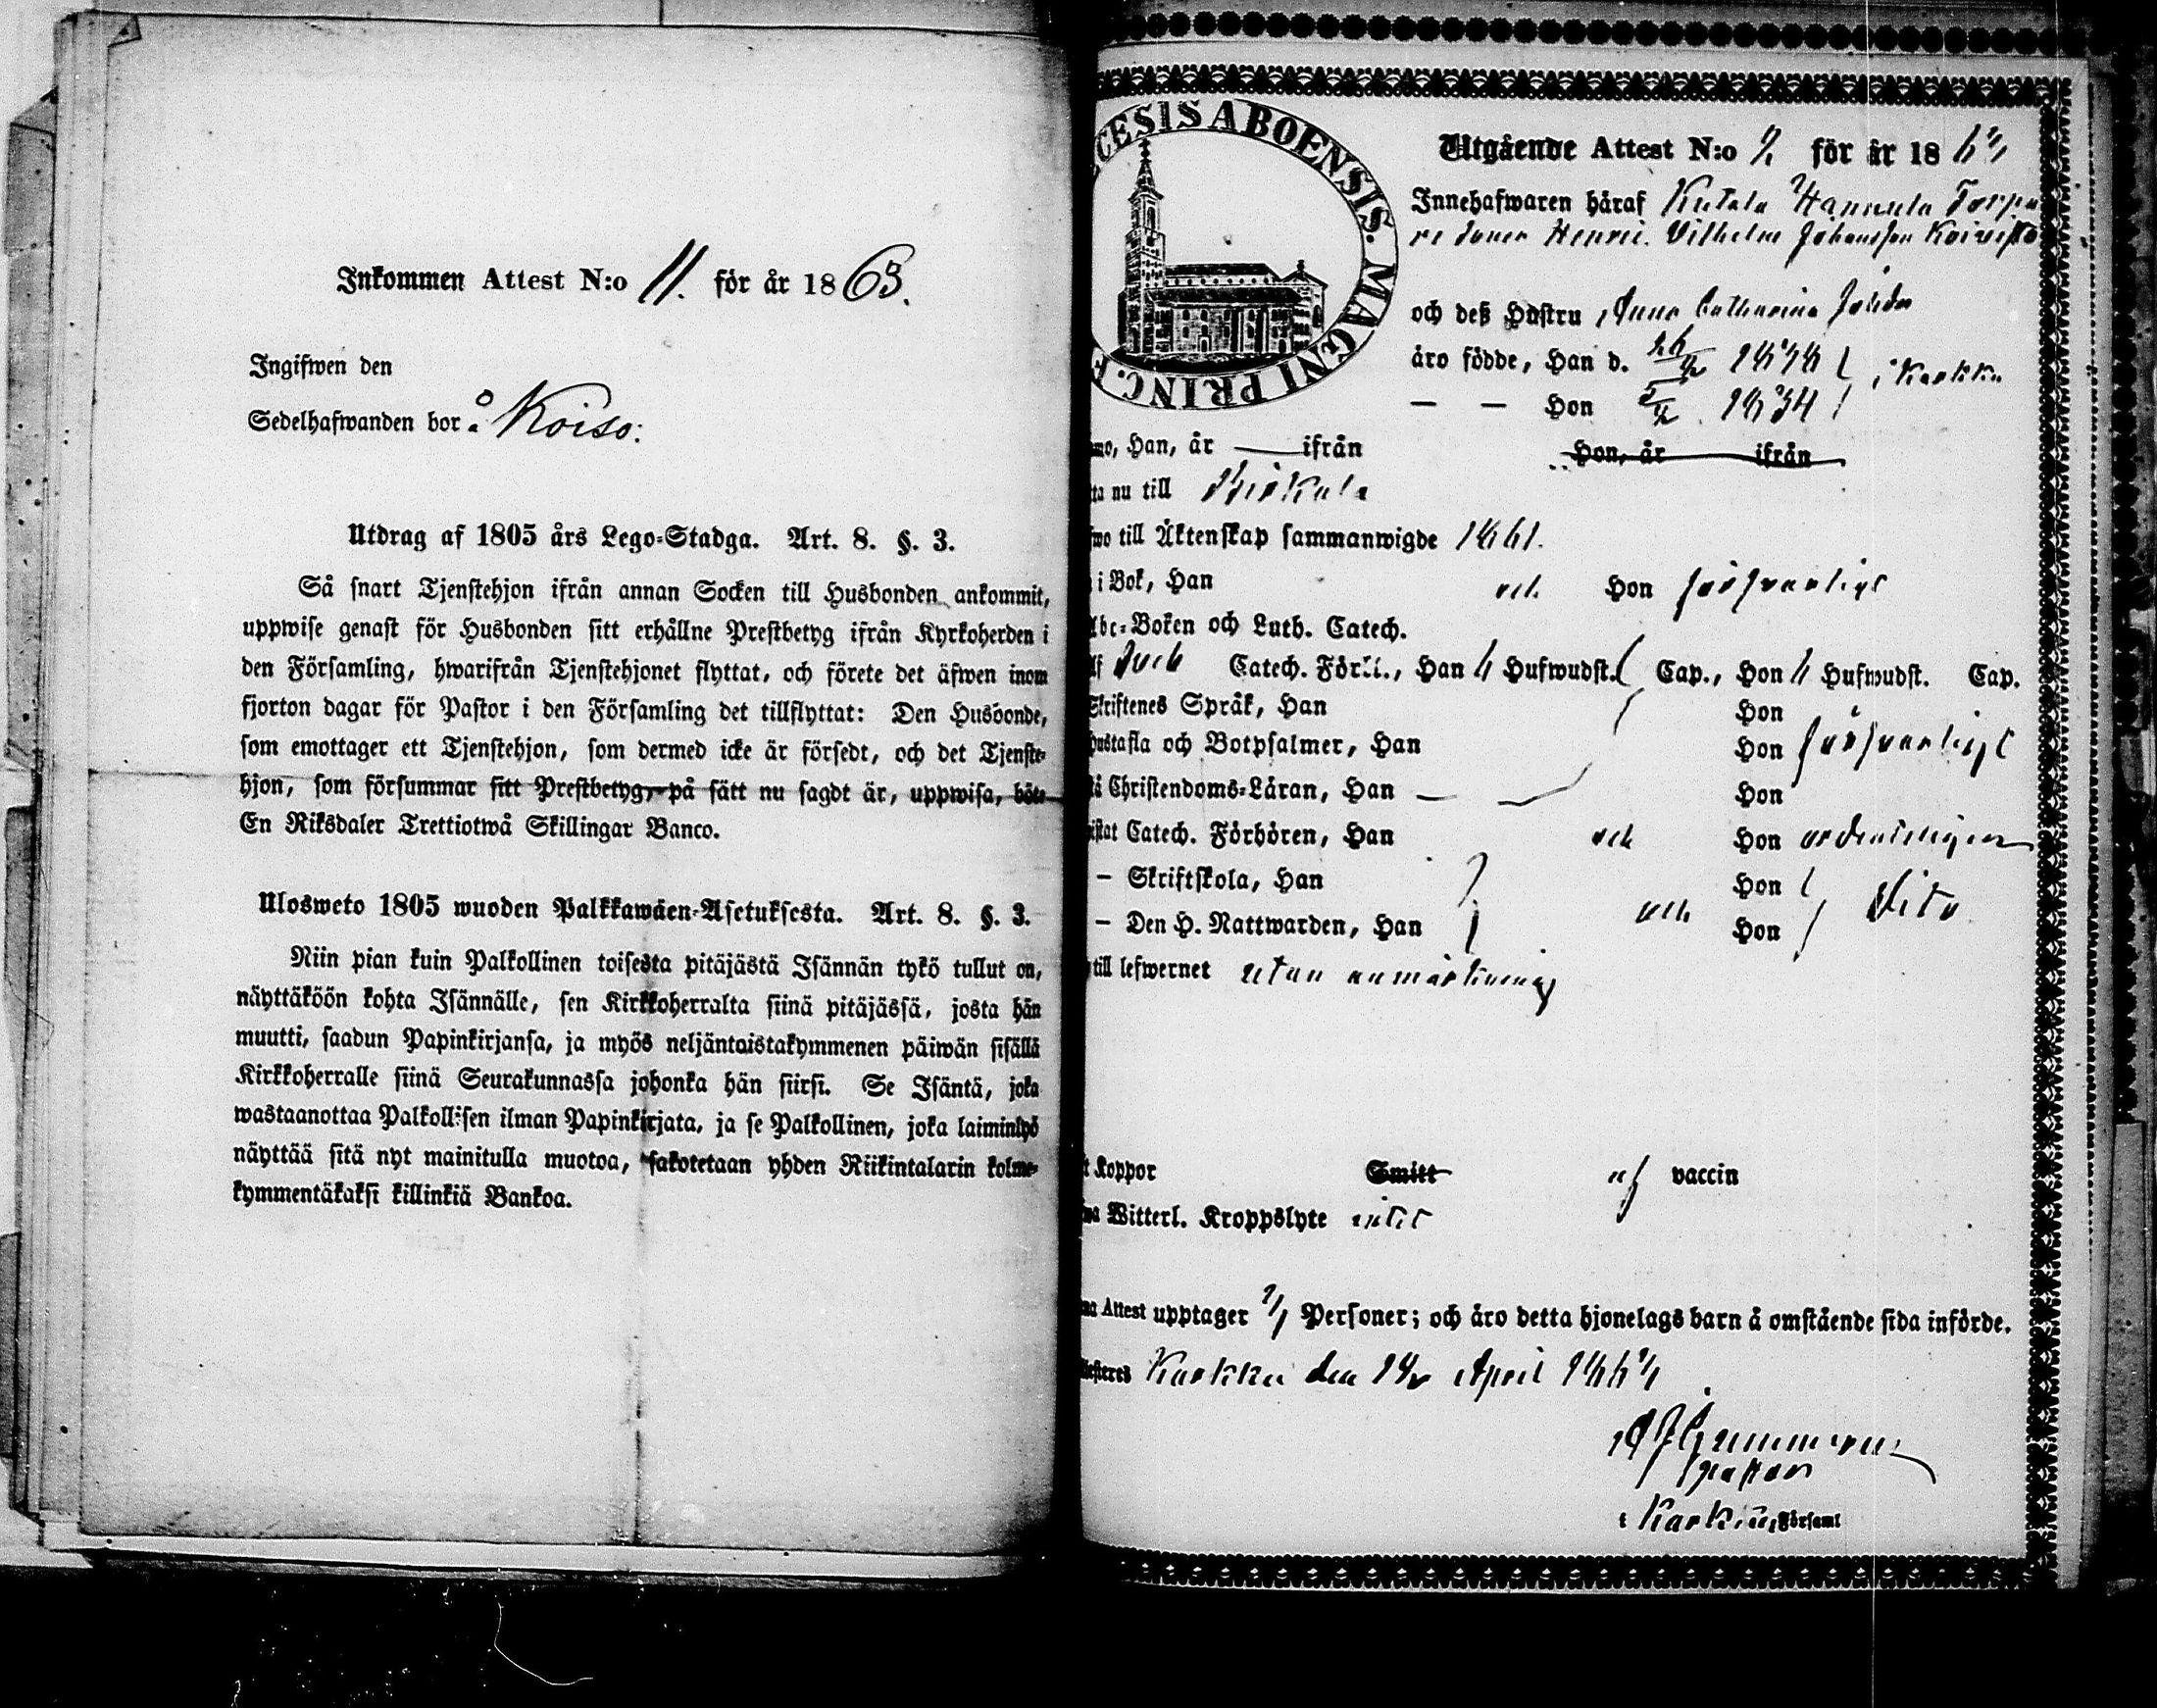 Inkommen Attest N:o 11. för år 1863.
Ingifwen den
Sedelhafwanden bor å Koiso.
Utdrag af 1805 års Lego-Stadga. Art. 8. §. 3.
Så snart Tjenstehjon ifrån annan Socken till Husbonden ankommit,
uppwise genast för Husbonden sitt erhållne Prestbetyg ifrån Kyrkoherden i
den Församling, hwarifrån Tjenstehjonet flyttat, och förete det äfwen inom
fjorton dagar för Pastor i den Församling det tillflyttat: Den Husbonde,
som emottager ett Tjenstehjon, som dermed icke är försedt, och det Tjenste-
hjon, som försummar sitt Prestbetyg, på sätt nu sagdt är, uppwisa, böte
En Riksdaler Trettiotwå Skillingar Banco.
Ulosweto 1805 wuoden Palkkawäen-Asetuksesta. Art. 8. §. 3.
Niin pian kuin Palkollinen toisesta pitäjästä Isännän tykö tullut on,
näyttäköön kohta Isännälle, sen Kirkkoherralta siinä pitäjässä, josta hän
muutti, saadun Papinkirjansa, ja myös neljäntoistakymmenen päiwän sisällä
Kirkkoherralle siinä Seurakunnassa johonka hän siirsi. Se Isäntä, joka
wastaanottaa Palkollisen ilman Papinkirjata, ja se Palkollinen, joka laiminlyö
näyttää sitä nyt mainitulla muotoa, sakotetaan yhden Riikintalarin kolme-
kymmentäkaksi killinkiä Bankoa.
CESIS ABOENSIS. MAGNI PRINC. F
Utgående Attest N:o för år 186
Innehafwaren häraf Kutala Hannula Torpa
re sonen Henric Vilhelm Johansson Koivisto
och deß Hustru Anna Catharina Johdr
äro födde, Han d. 26 18 i Karkku
— — Hon 5 1834
mo, Han, år — ifrån Hon, år ifrån
ta nu till Birkala
wo till Äktenskap sammanwigde 1861.
i Bok, Han och Hon försvarligt
Abc-Boken och Luth. Catech.
lf och Catech. Förkl., Han Hufwudst. Cap., Hon Hufwudst. Cap.
Skriftenes Språk, Han Hon
Hustafla och Botpsalmer, Han Hon försvarligt
å Christendoms-Läran, Han Hon
istat Catech. Förhören, Han och Hon ordentligen
— Skriftskola, Han Hon
— Den H. Nattwarden, Han och Hon dito
till lefwernet utan anmärkning
t Koppor Smitt af vaccin
wa Witterl. Kroppslyte intet
na Attest upptager Personer; och äro detta hjonelags barn å omstående sida införde.
testeres Karkku den April 186
pastor
i Karkku Församl